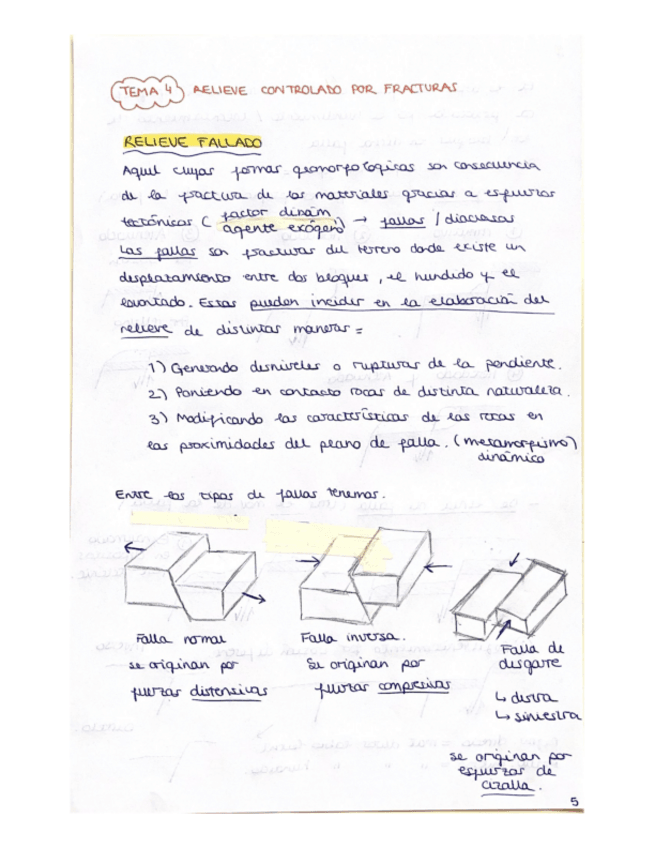 TEMA 4 RELIEVE CONTROLADO POR FRACTURAS
RELIEVE FALLADO
Aquel cuyas formas geomorfológicas son consecuencia
de la fractura de los materiales gracias a esfuerzos
tectónicos ( factor dinám
agente exógeno) → fallas / diaclasas
Las fallas son fracturas del terreno donde existe un
desplazamiento entre dos bloques, el hundido y el
levantado. Estas pueden incidir en la elaboración del
relieve de distintas maneras =
1) Generando desniveles o rupturas de la pendiente.
2) Poniendo en contacto rocas de distinta naturaleza.
3) Modificando las características de las rocas en
las proximidades del plano de falla. (metamorfismo)
dinámico
Entre los tipos de fallas tenemos.
Falla normal
se originan por
fuerzas distensivas
Falla inversa.
Se originan por
fuerzas compresivas
Falla de
desgarre
↳ dextra
↳ siniestra
se originan por
esfuerzos de
cizalla.
5